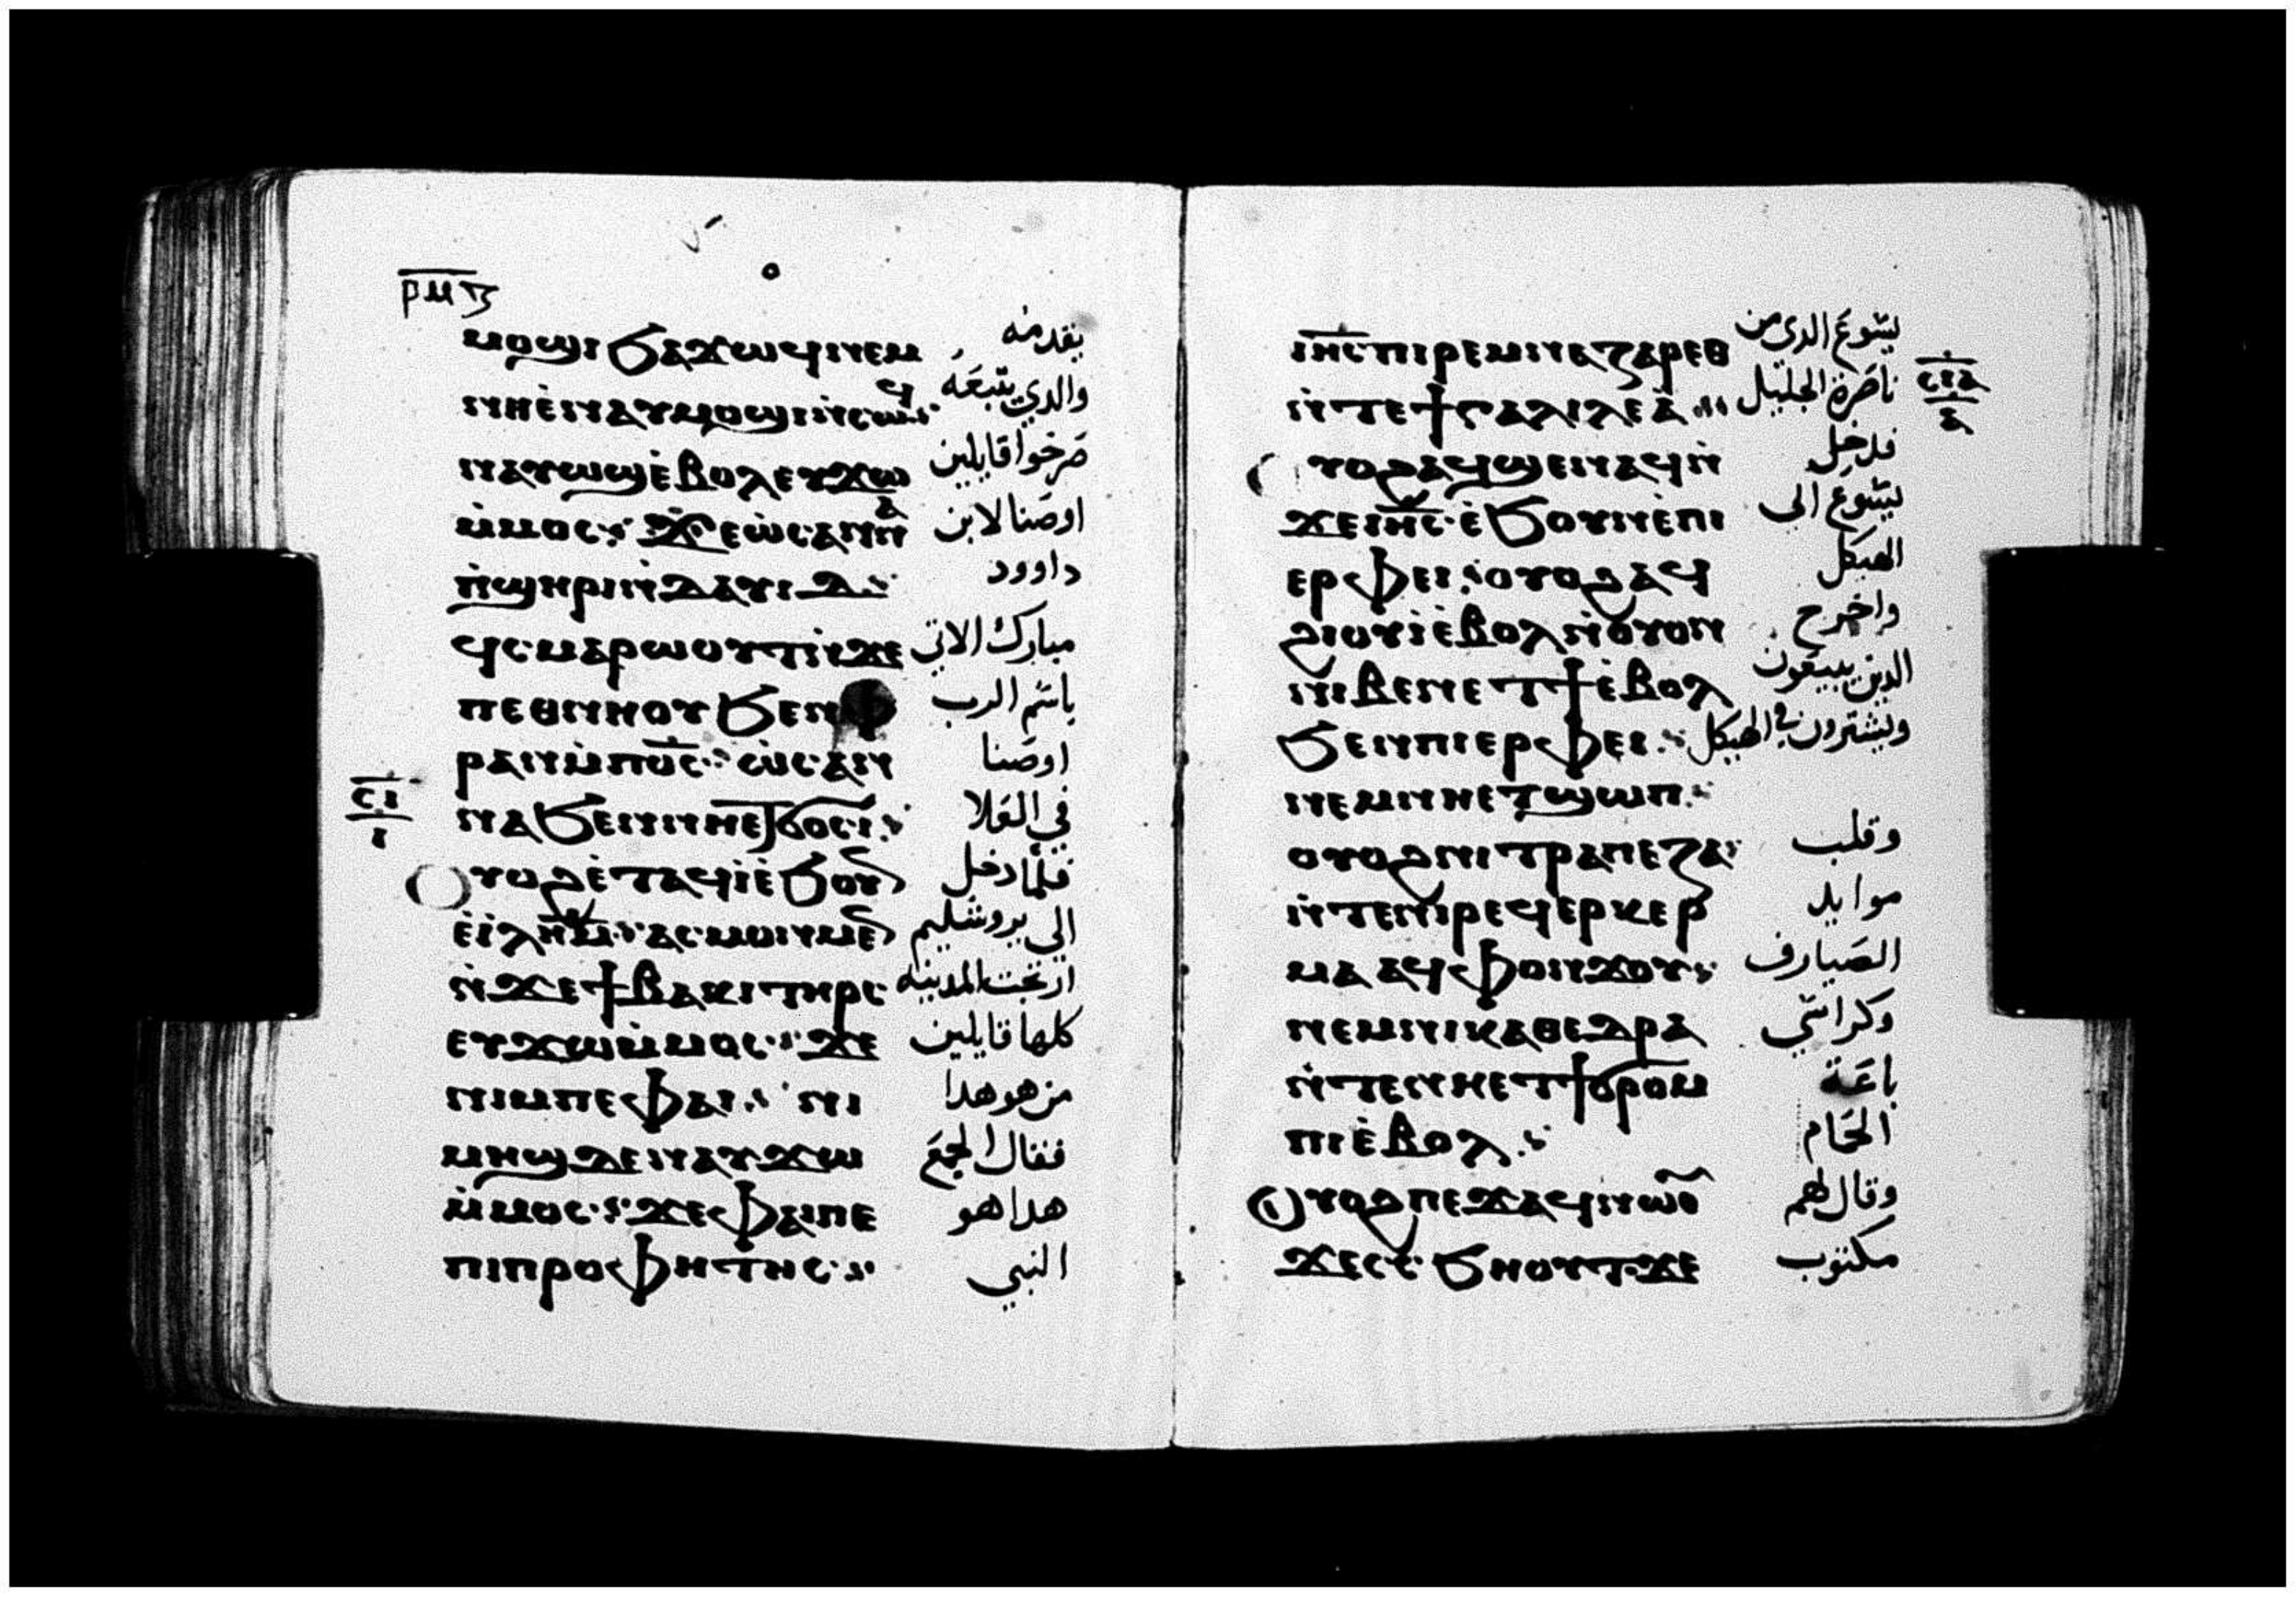 ⲣⲙⲃ
ⲙⲟϣⲓ ϧⲁϫⲱϥ ⲛⲉⲙ يقدمه
ⲛⲏⲉ̀ⲛⲁⲩⲙⲟϣⲓ ⲛ̀ⲥⲱϥ والدي يتبعه
ⲛⲁⲩⲱϣ ⲉ̀ⲃⲟⲗ ⲉⲩϫⲱ صرخوا قايلين
ⲙ̀ⲙⲟⲥ: ϫⲉ ⲱ̀ⲥⲁⲛⲛⲁ اوصنا لابن
ⲙ̀ⲡϣⲏⲣⲓ ⲛ̀ⲇⲁⲩⲓⲇ: داوود
ϥ̀ⲥⲙⲁⲣⲱⲟⲩⲧ ⲛ̀ϫⲉ مبارك الاتي
ⲡⲉⲑⲛⲏⲟⲩ ϧⲉⲛ ⲫ باسم الرب
ⲣⲁⲛ ⲙ̀ⲡⲟ̅ⲥ̅: ⲱ̀ⲥⲁⲛ اوصنا
ⲛⲁ ϧⲉⲛ ⲛⲏⲉⲧϭⲟⲥⲓ: في العلا
ⲥⲓ
ⲓ
ⲟⲩⲟϩ ⲉ̀ⲧⲁϥⲓ̀ ⲉ̀ϧⲟⲩⲛ فلما دخل
ⲉ̀ⲓ̀ⲗ̅ⲏ̅ⲙ̅: ⲁⲥⲙⲟⲛⲙⲉⲛ الي يروشليم
ⲛ̀ϫⲉ ϯⲃⲁⲕⲓ ⲧⲏⲣⲥ ارتجت المدينه
ⲉⲩϫⲱ ⲙ̀ⲙⲟⲥ: ϫⲉ كلها قايلين
ⲛⲓⲙ ⲡⲉ ⲫⲁⲓ: ⲛⲓ من هو هدا
ⲙⲏϣ ⲇⲉ ⲛⲁⲩϫⲱ فقال الجمع
ⲙ̀ⲙⲟⲥ: ϫⲉ ⲫⲁⲓ ⲡⲉ هدا هو
ⲡⲓⲡⲣⲟⲫⲏⲧⲏⲥ: النبي
ⲓ̅ⲏ̅ⲥ̅ ⲡⲓⲣⲉⲙⲛⲁⲍⲁⲣⲉⲑ يسوع الدى من
ⲛ̀ⲧⲉ ϯⲅⲁⲗⲓⲗⲉⲁ̀: ناصرة الجليل
ⲥⲓⲁ
ⲁ
ⲟⲩⲟϩ ⲁϥϣⲉⲛⲁϥ ⲛ̀ فدخل
ϫⲉ ⲓ̅ⲏ̅ⲥ̅ ⲉ̀ϧⲟⲩⲛ ⲉ̀ⲡⲓ يسوع الى
ⲉⲣⲫⲉⲓ: ⲟⲩⲟϩ ⲁϥ الهيكل
ϩⲓⲟⲩⲓ̀ ⲉ̀ⲃⲟⲗ ⲛ̀ⲟⲩⲟⲛ واخرج
ⲛⲓⲃⲉⲛ ⲉⲧϯ ⲉ̀ⲃⲟⲗ الدين يبيعون
ϧⲉⲛ ⲡⲓⲉⲣⲫⲉⲓ: ويشترون في الهيكل
ⲛⲉⲙ ⲛⲏⲉⲧϣⲱⲡ:
ⲟⲩⲟϩ ⲛⲓⲧⲣⲁⲡⲉⲍⲁ: وقلب
ⲛ̀ⲧⲉ ⲛⲓⲣⲉϥⲉⲣⲕⲉⲣ موايد
ⲙⲁ ⲁϥⲫⲟⲛϫⲟⲩ: الصيارف
ⲛⲉⲙ ⲛⲓⲕⲁⲑⲉⲇⲣⲁ وكراسي
ⲛ̀ⲧⲉ ⲛⲏⲉⲧϯϭⲣⲟⲙ باعة
ⲡⲓ ⲉ̀ⲃⲟⲗ: الحمام
ⲟⲩⲟϩ ⲡⲉϫⲁϥ ⲛⲱⲟⲩ وقال لهم
ϫⲉ ⲥ̀ⲥ̀ϧⲏⲟⲩⲧ ϫⲉ مكتوب